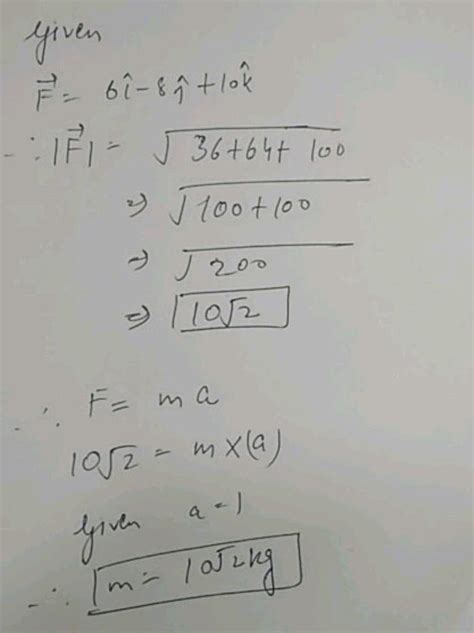 Given
F⃗ = 6î - 8ĵ + 10k̂
∴ |F⃗| = √36+64+ 100
⇒ √100+100
⇒ √200
⇒ 10√2
∴ F = ma
10√2 = m×(a)
Given a = 1
∴ m = 10√2 kg